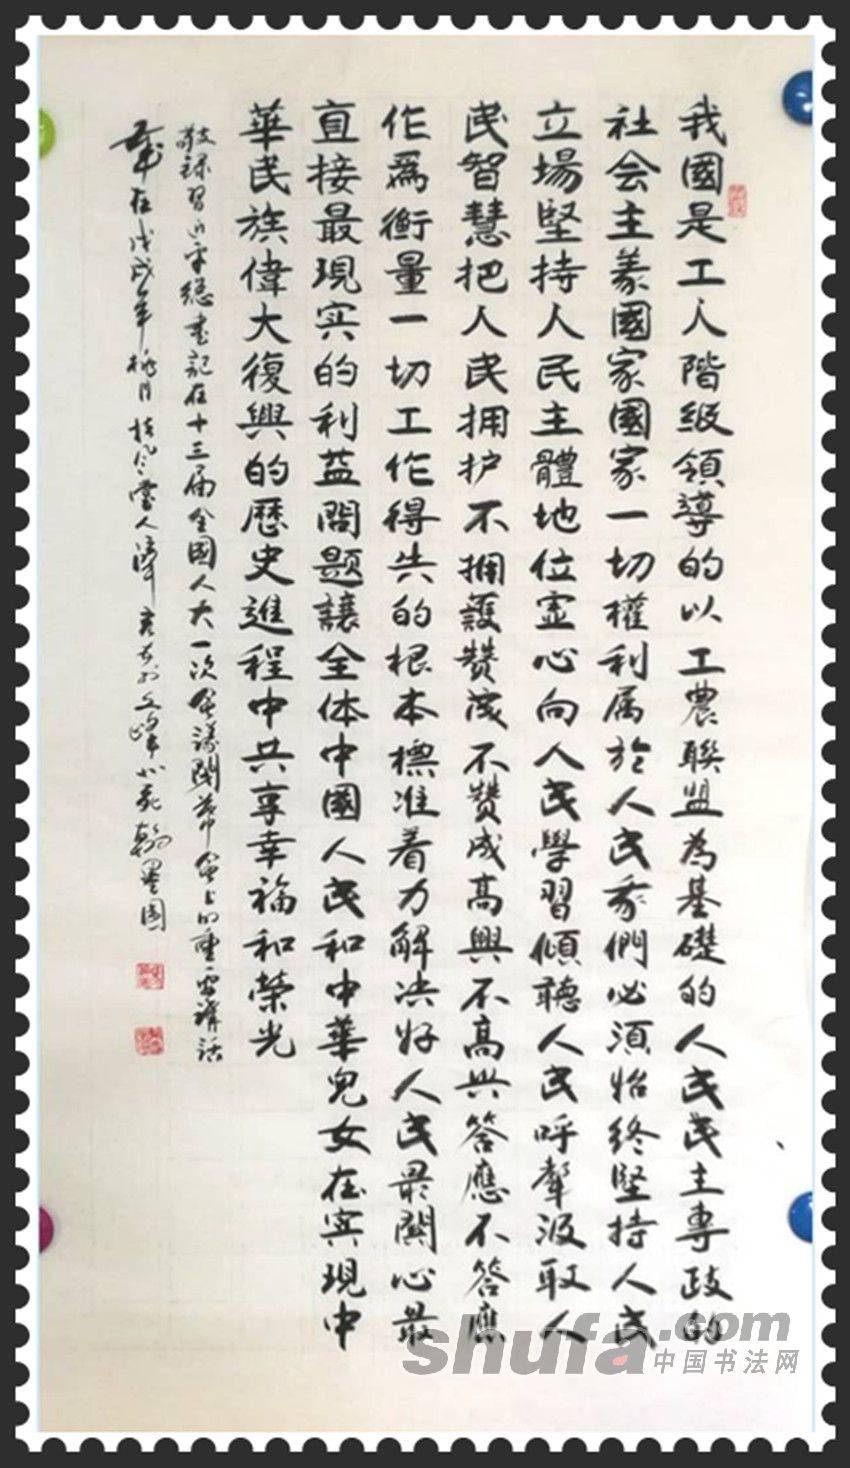 我國是工人階級領導的以工農聯盟為基礎的人民民主專政的
社会主義國家國家一切權利属於人民我們必須始終堅持人民
立場堅持人民主體地位虚心向人民學習傾聽人民呼聲汲取人
民智慧把人民拥护不拥護赞成不赞成高興不高兴答應不答應
作為衡量一切工作得失的根本標准着力解决好人民最関心最
直接最現实的利益問題讓全体中國人民和中華兒女在实現中
華民族偉大復興的歷史進程中共享幸福和榮光
敬録習近平總書記在十三届全國人大一次會議閉幕會上的重要講話
歲在戊戌年桃月
翰墨園
shufa.com
中国书法网